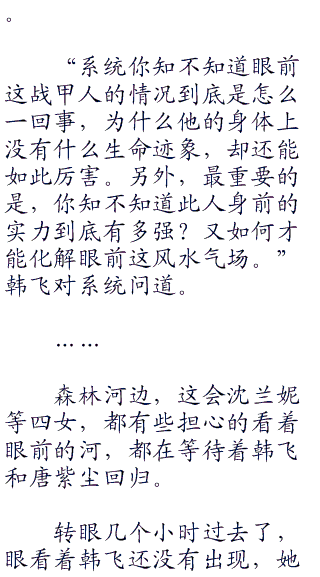 。
“系统你知不知道眼前
这战甲人的情况到底是怎么
一回事，为什么他的身体上
没有什么生命迹象，却还能
如此厉害。另外，最重要的
是，你知不知道此人身前的
实力到底有多强？又如何才
能化解眼前这风水气场。”
韩飞对系统问道。
……
森林河边，这会沈兰妮
等四女，都有些担心的看着
眼前的河，都在等待着韩飞
和唐紫尘回归。
转眼几个小时过去了，
眼看着韩飞还没有出现，她